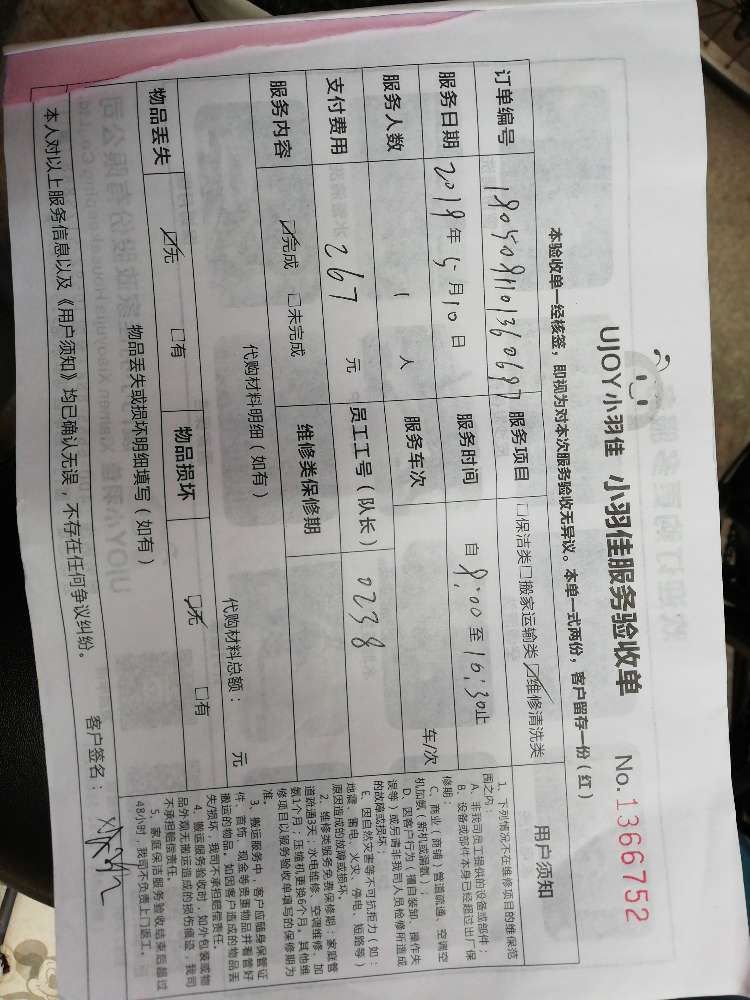 UJOY小羽佳 小羽佳服务验收单 No.1366752
本验收单一经核签，即视为对本次服务验收无异议。本单一式两份，客户留存一份（红）
订单编号 服务项目 □保洁类□搬家运输类☑维修清洗类
服务日期 2019年5月10日 服务时间 自 8:00 至 10:30止
服务人数 1 人 服务车次 车/次
支付费用 267 元 员工工号（队长） 0238
服务内容 ☑完成 □未完成 维修类保修期
代购材料明细（如有） 代购材料总额： 元
物品丢失 ☑无 □有 物品损坏 ☑无 □有
物品丢失或损坏明细填写（如有）
本人对以上服务信息以及《用户须知》均已确认无误，不存在任何争议纠纷。
客户签名：
用户须知
1、下列情况不在维修项目的维保范
围之内：
A、非我司员工提供的设备或部件；
B、设备或部件本身已经超过出厂保
修期；
C、商业（商铺）管道疏通、空调空
机加氨（新机或漏氨）；
D、因客户行为（擅自装卸、操作失
误等）或另请非我司人员检修所造成
的故障或损坏；
E、因自然灾害等不可抗拒力（如：
地震、雷电、火灾、停电、短路等）
原因造成的故障或损坏。
2、维修类服务免费保修期：家庭管
道疏通3天；水电维修、空调维修、加
氨1个月；压缩机更换6个月。其他维
修项目以服务验收单填写的保修期为
准。
3、搬运服务中，客户应随身保管证
件、首饰、现金等贵重物品并看管好
搬运的物品。如因客户造成的物品丢
失/损坏，我司不承担赔偿责任。
4、搬运服务验收时，如外包装或物
品外观无搬运造成的损伤痕迹，我司
不承担赔偿责任。
5、家庭保洁服务验收结束后超过
48小时，我司不负责上门返工。